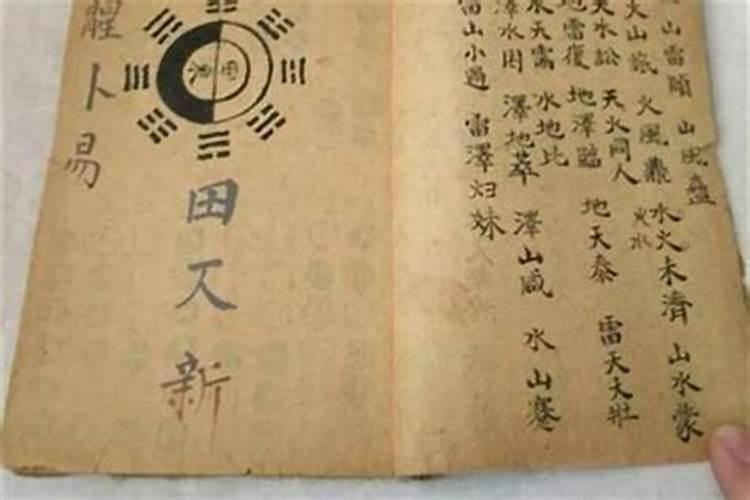 山雷頤 山風蠱
火山旅 火風鼎 水火未濟 山水蒙
火水
天水訟 天火同人 地天泰 雷天大壯
地雷復 地澤臨
水天需 水地比
澤水困 澤地萃 澤山咸 水山蹇
雷山小過 雷澤归妹
田
新
卜易